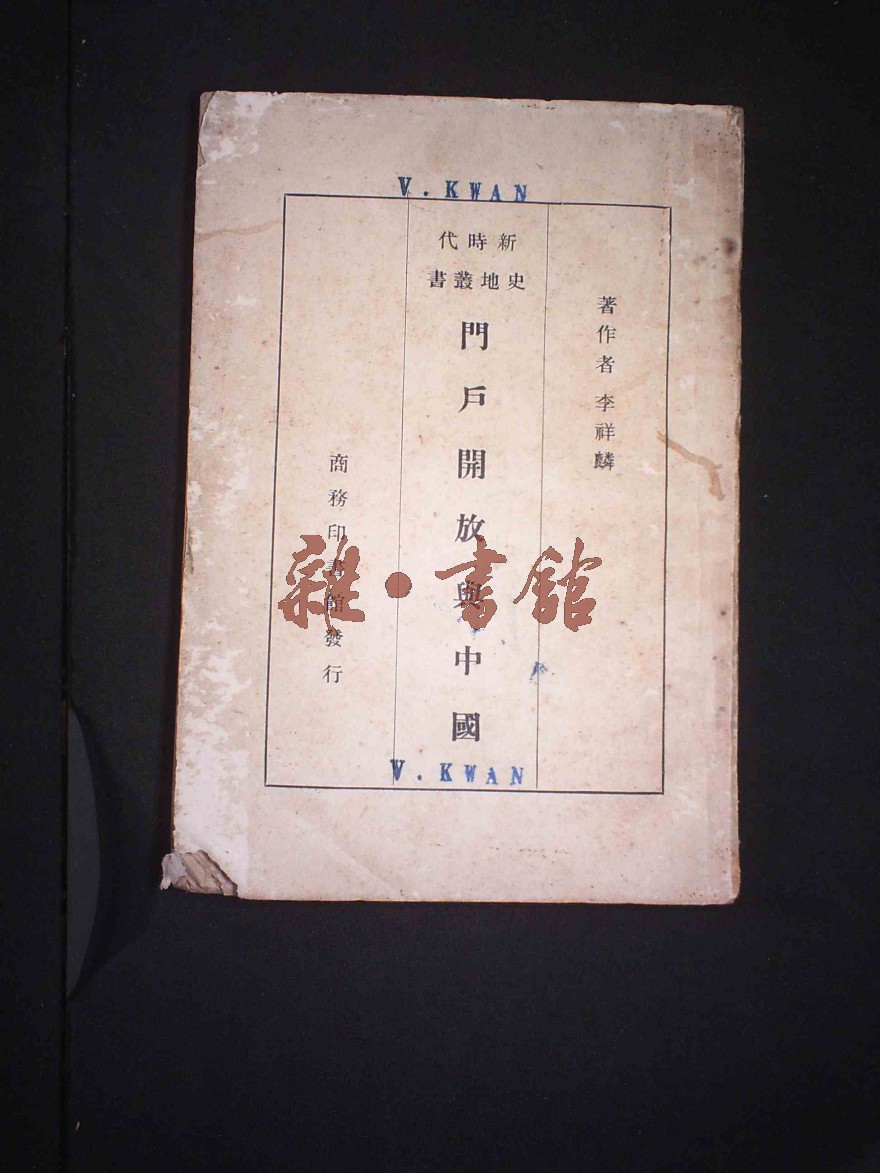 V. KWAN
新時代
史地叢書
著作者 李祥麟
門戶開放與中國
商務印書館發行
V. KWAN
雜·書館